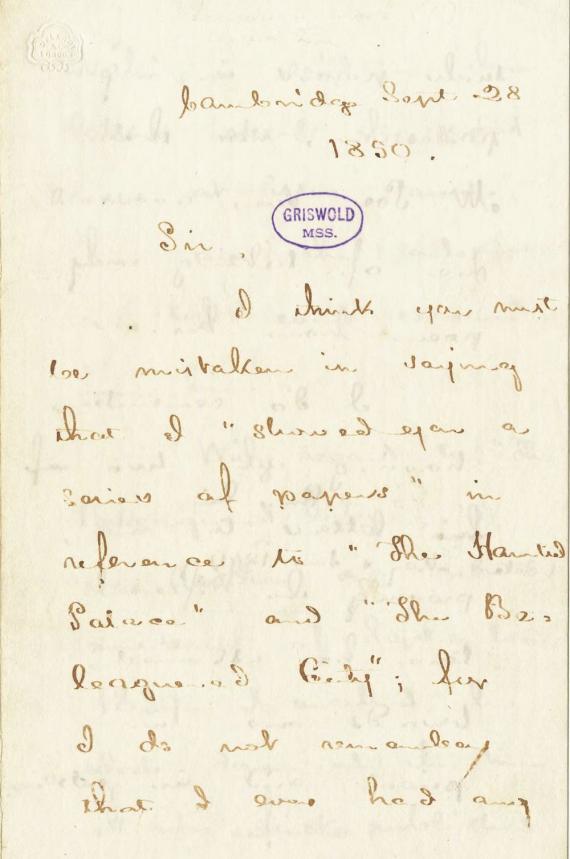 Cambridge Sept 28
1850.
GRISWOLD
MSS.
Sir,
I think you must
be mistaken in saying
that I "showed you a
series of papers" in
reference to "The Haunted
Palace" and "The Be=
leaguered City"; for
I do not remember
that I ever had any